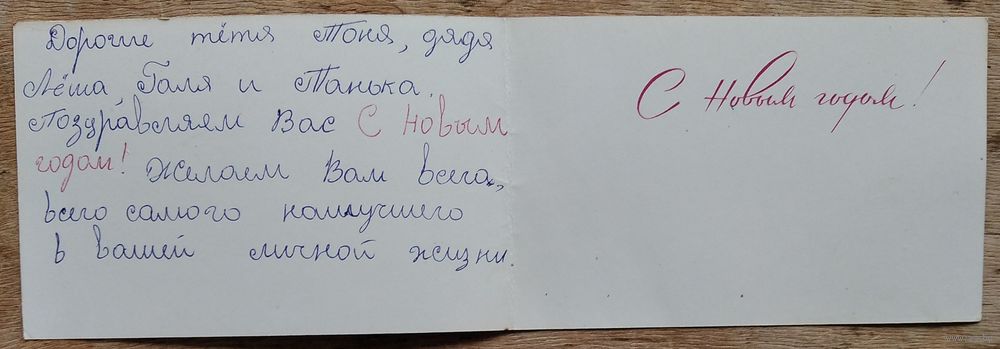 Дорогие тётя Тоня, дядя
Лёша, Галя и Танька.
Поздравляем Вас С Новым
годом! Желаем Вам всего,
всего самого наилучшего
в вашей личной жизни.
С Новым годом!